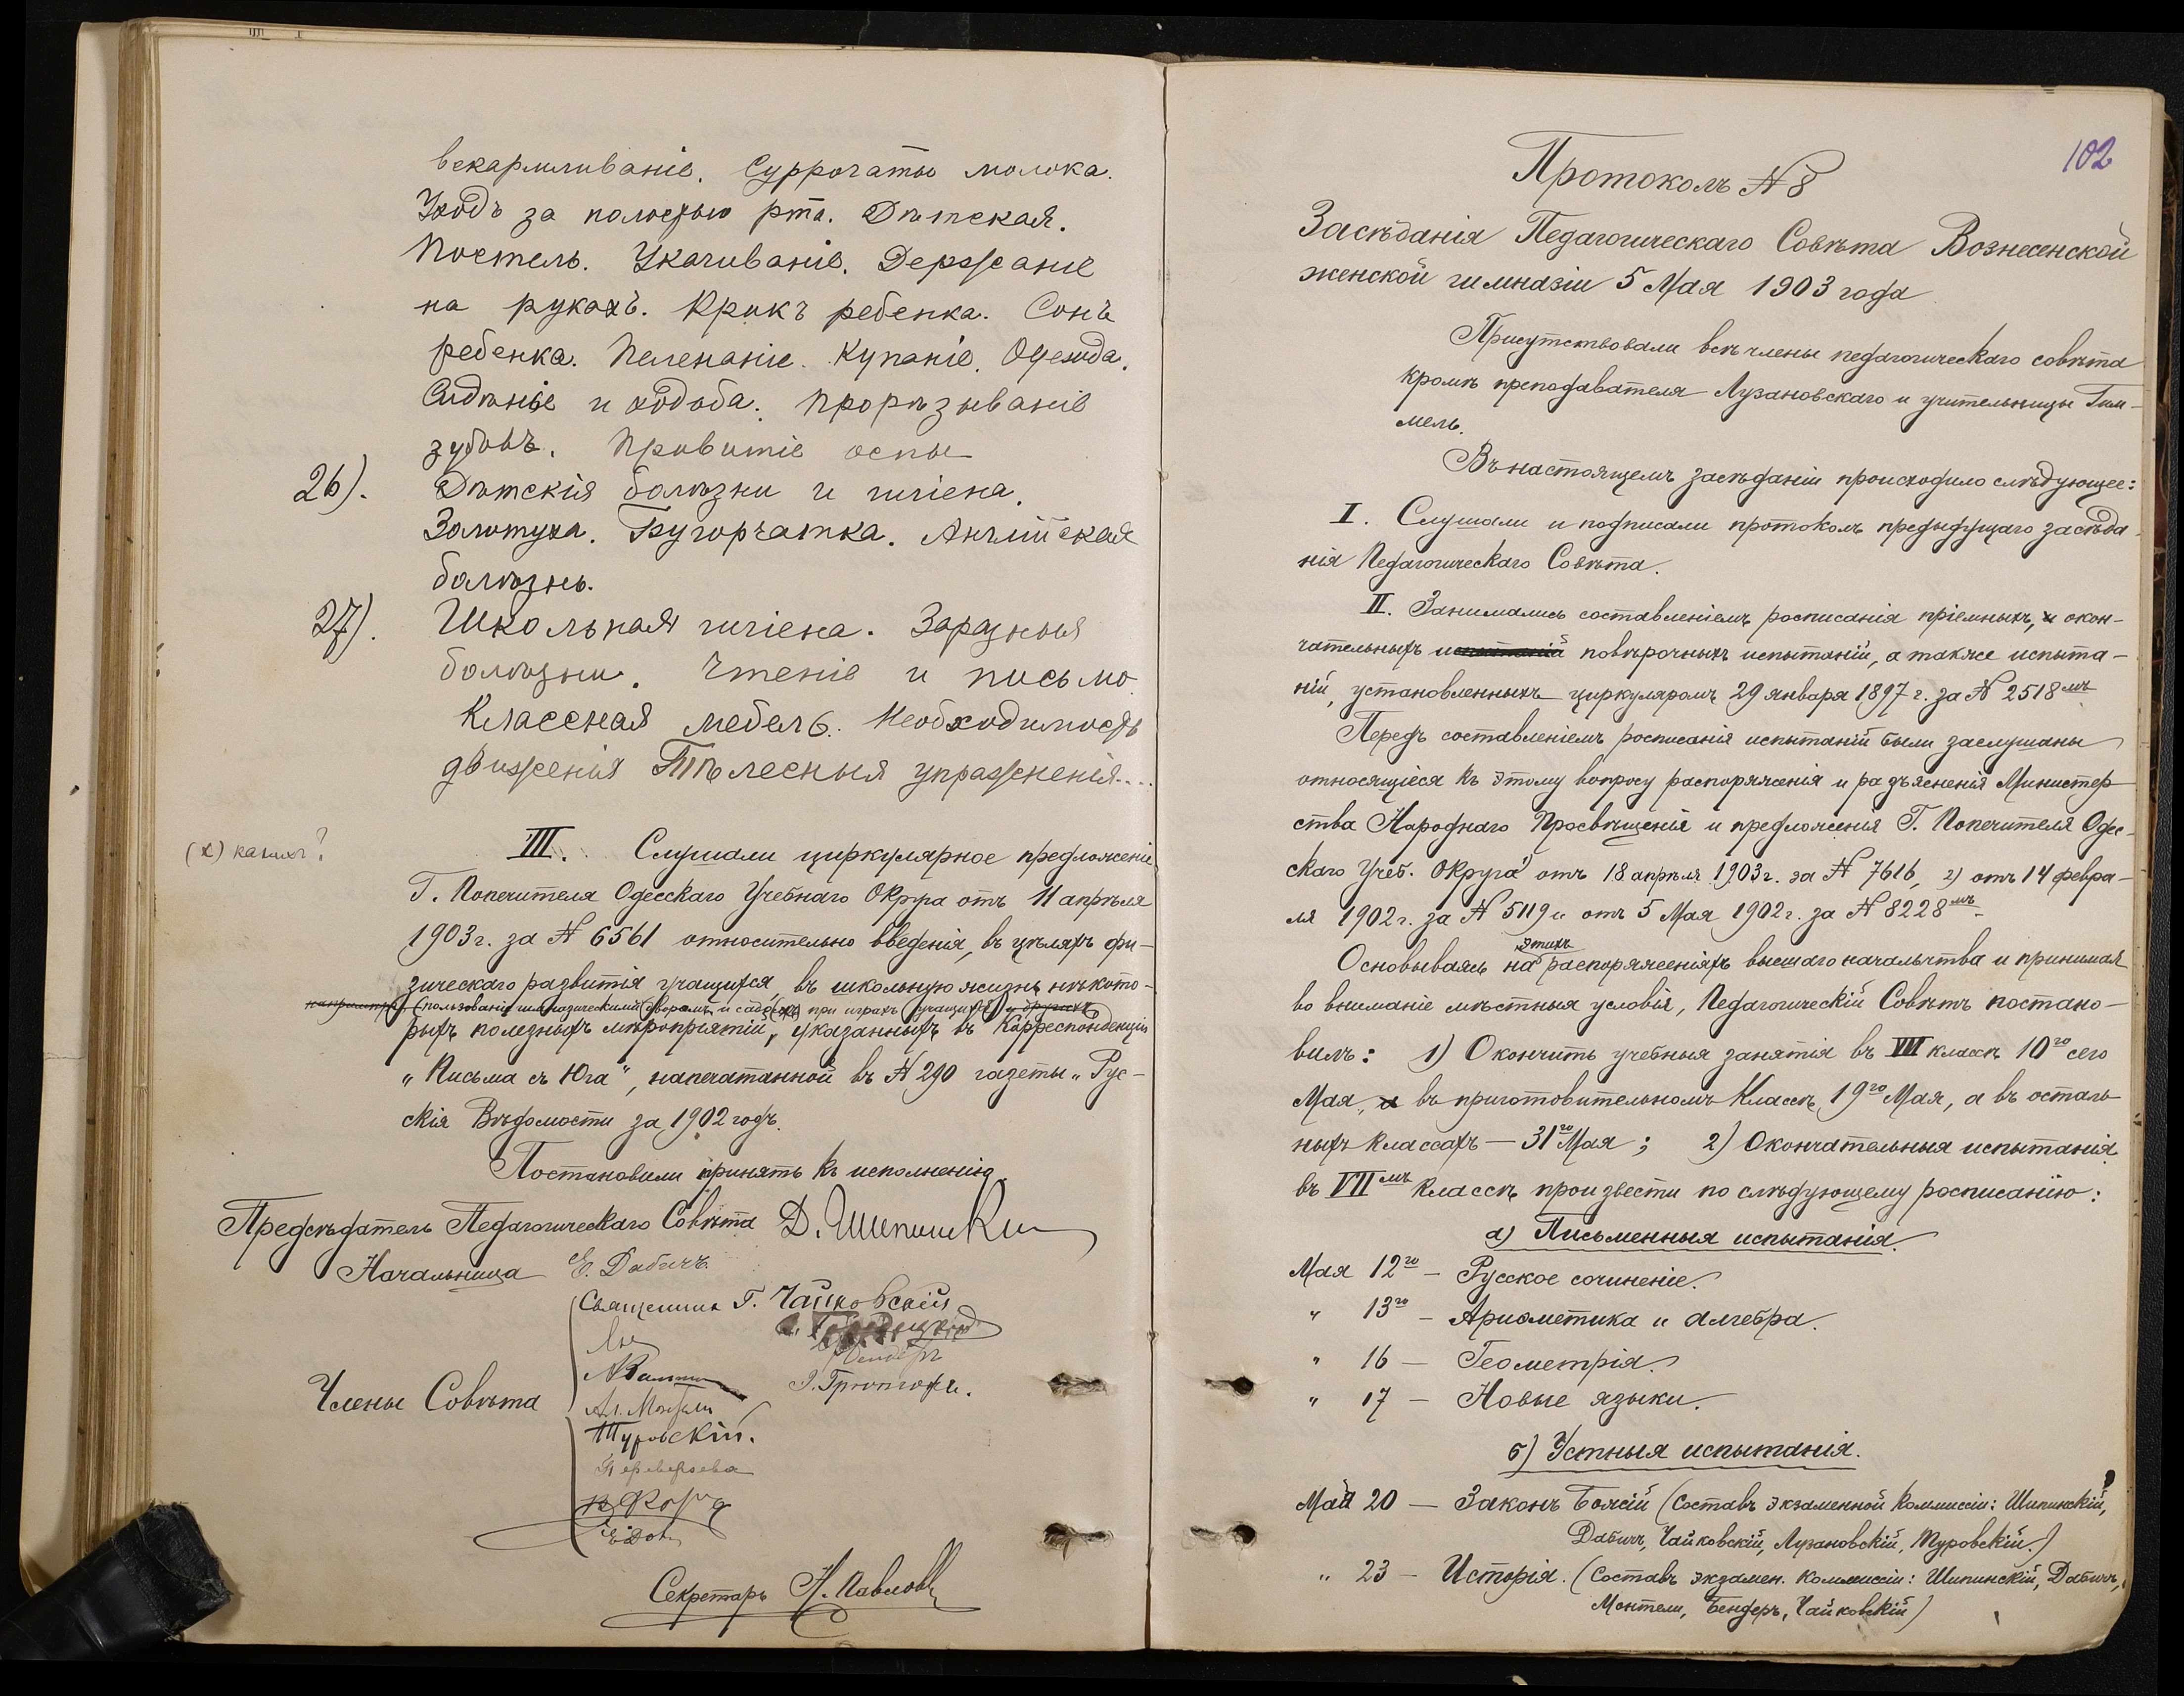 вскармливаніе. Суррогаты молока.
Уходъ за полостью рта. Дѣтская.
Постель. Укачиваніе. Держаніе
на рукахъ. Крикъ ребенка. Сонъ
ребенка. Пеленаніе. Купаніе. Одежда.
Сидѣніе и ходьба. Прорѣзываніе
зубовъ. Привитіе оспы
26). Дѣтскія болѣзни и гигіена.
Золотуха. Бугорчатка. Англійская
болѣзнь.
27). Школьная гигіена. Заразныя
болѣзни. Чтеніе и письмо
Классная мебель. Необходимость
движенія Тѣлесныя упражненія....
(х) какихъ?
III. Слушали циркулярное предложеніе
Г. Попечителя Одесскаго Учебнаго Округа отъ 11 апрѣля
1903 г. за № 6561 относительно введенія, въ цѣляхъ фи-
зическаго развитія учащихся, въ школьную жизнь нѣкото-
например (пользованіе гимназическими дворомъ и садомъ (х) при играхъ учащихся) и другихъ
рыхъ полезныхъ мѣропріятій, указанныхъ въ Корреспонденціи
„Письма съ Юга", напечатанной въ № 290 газеты „Рус-
скія Вѣдомости за 1902 годъ.
Постановили принять къ исполненію.
Предсѣдатель Педагогическаго Совѣта Д. Шипинскій
Начальница Е. Дабичъ.
Священникъ Г. Чайковскій
Бендеръ
Члены Совѣта
Ал. Монтели
Туровскій.
Секретарь Н. Павловъ
102
Протоколъ № 8
Засѣданія Педагогическаго Совѣта Вознесенской
женской гимназіи 5 Мая 1903 года
Присутствовали всѣ члены педагогическаго совѣта
кромѣ преподавателя Лузановскаго и учительницы Гим-
мель.
Въ настоящемъ засѣданіи происходило слѣдующее:
I. Слушали и подписали протоколъ предыдущаго засѣда-
нія Педагогическаго Совѣта.
II. Занимались составленіемъ росписанія пріемныхъ, и окон-
чательныхъ испытаній повѣрочныхъ испытаній, а также испыта-
ній, установленныхъ циркуляромъ 29 января 1897 г. за № 2518мъ
Передъ составленіемъ росписанія испытаній были заслушаны
относящіеся къ этому вопросу распоряженія и разъясненія Министер
ства Народнаго Просвѣщенія и предложенія Г. Попечителя Одес-
скаго Учеб. Округа 1) отъ 18 апрѣля 1903 г. за № 7616, 2) отъ 14 февра-
ля 1902 г. за № 5119 и отъ 5 Мая 1902 г. за № 8228мъ.
этихъ
Основываясь на распоряженіяхъ высшаго начальства и принимая
во вниманіе мѣстныя условія, Педагогическій Совѣтъ постано-
вилъ: 1) Окончить учебныя занятія въ VII классѣ 10го сего
Мая, а въ приготовительномъ Классѣ 19го Мая, а въ осталь
ныхъ классахъ — 31го Мая; 2) Окончательныя испытанія
въ VIIмъ классѣ произвести по слѣдующему росписанію:
а) Письменныя испытанія.
Мая 12го — Русское сочиненіе.
" 13го — Ариѳметика и алгебра.
" 16 — Геометрія.
" 17 — Новые языки.
б) Устныя испытанія.
Мая 20 — Законъ Божій (Составъ экзаменной Коммиссіи: Шипинскій,
Дабичъ, Чайковскій, Лузановскій, Туровскій.)
" 23 — Исторія. (Составъ экзамен. коммиссіи: Шипинскій, Дабичъ,
Монтели, Бендеръ, Чайковскій)